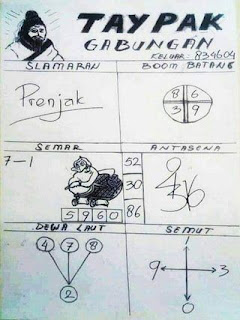 TAYPAK
GABUNGAN
KELUAR: 834604
SLAMARAN
BOOM BATANG
Prenjak
8 6
3 9
SEMAR
ANTASENA
7-1
52
30
5960
86
DEWA LAUT
SEMUT
4 7 8
2
1
9 3
0